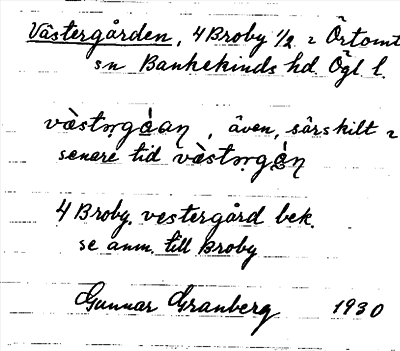 Västergården, 4 Broby 1/2 i Örtomta
sn Bankekinds hd. Ögl. l.
væ̀stərgɑ́aŋ, även, särskilt i
senare tid
4 Broby. vestergård bek.
se anm. till Broby
Gunnar Granberg 1930